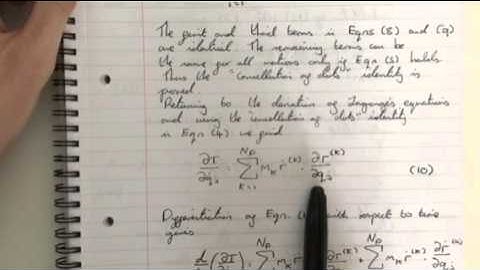 i=1
The first and third terms in Eqns (8) and (9)
are identical. The remaining terms can be
the same for all motions only if Eqn (5) holds.
Thus the "cancellation of dots" identity is
proved.
Returning to the derivation of Lagrange's equations
and using the "cancellation of dots" identity
in Eqn (4) we find
∂T/∂q̇ⱼ = Σ_{k=1}^{Np} m_k ṙ^(k) · ∂r^(k)/∂qⱼ (10)
Differentiation of Eqn with respect to time
gives
d/dt (∂T/∂q̇ⱼ) = Σ^{Np} m_k r̈^(k) · ∂r^(k)/∂qⱼ + Σ^{Np} m_k ṙ^(k) · ∂ṙ^(k)/∂qⱼ